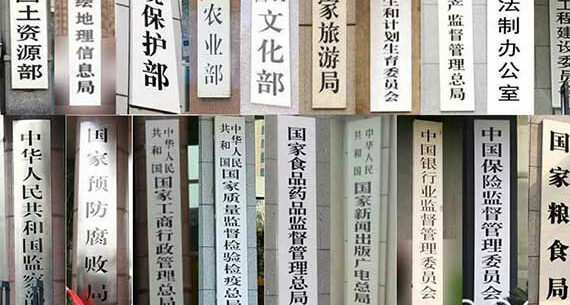 国土资源部
绘地理信息局
境保护部
农业部
文化部
国家旅游局
生和计划生育委员会
产监督管理总局
法制办公室
工程建设委
中华人民共和国监察部
国家预防腐败局
中华人民共和国国家工商行政管理总局
中华人民共和国国家质量监督检验检疫总局
国家食品药品监督管理总局
中华人民共和国国家新闻出版广电总局
中国银行业监督管理委员会
中国保险监督管理委员会
国家粮食局